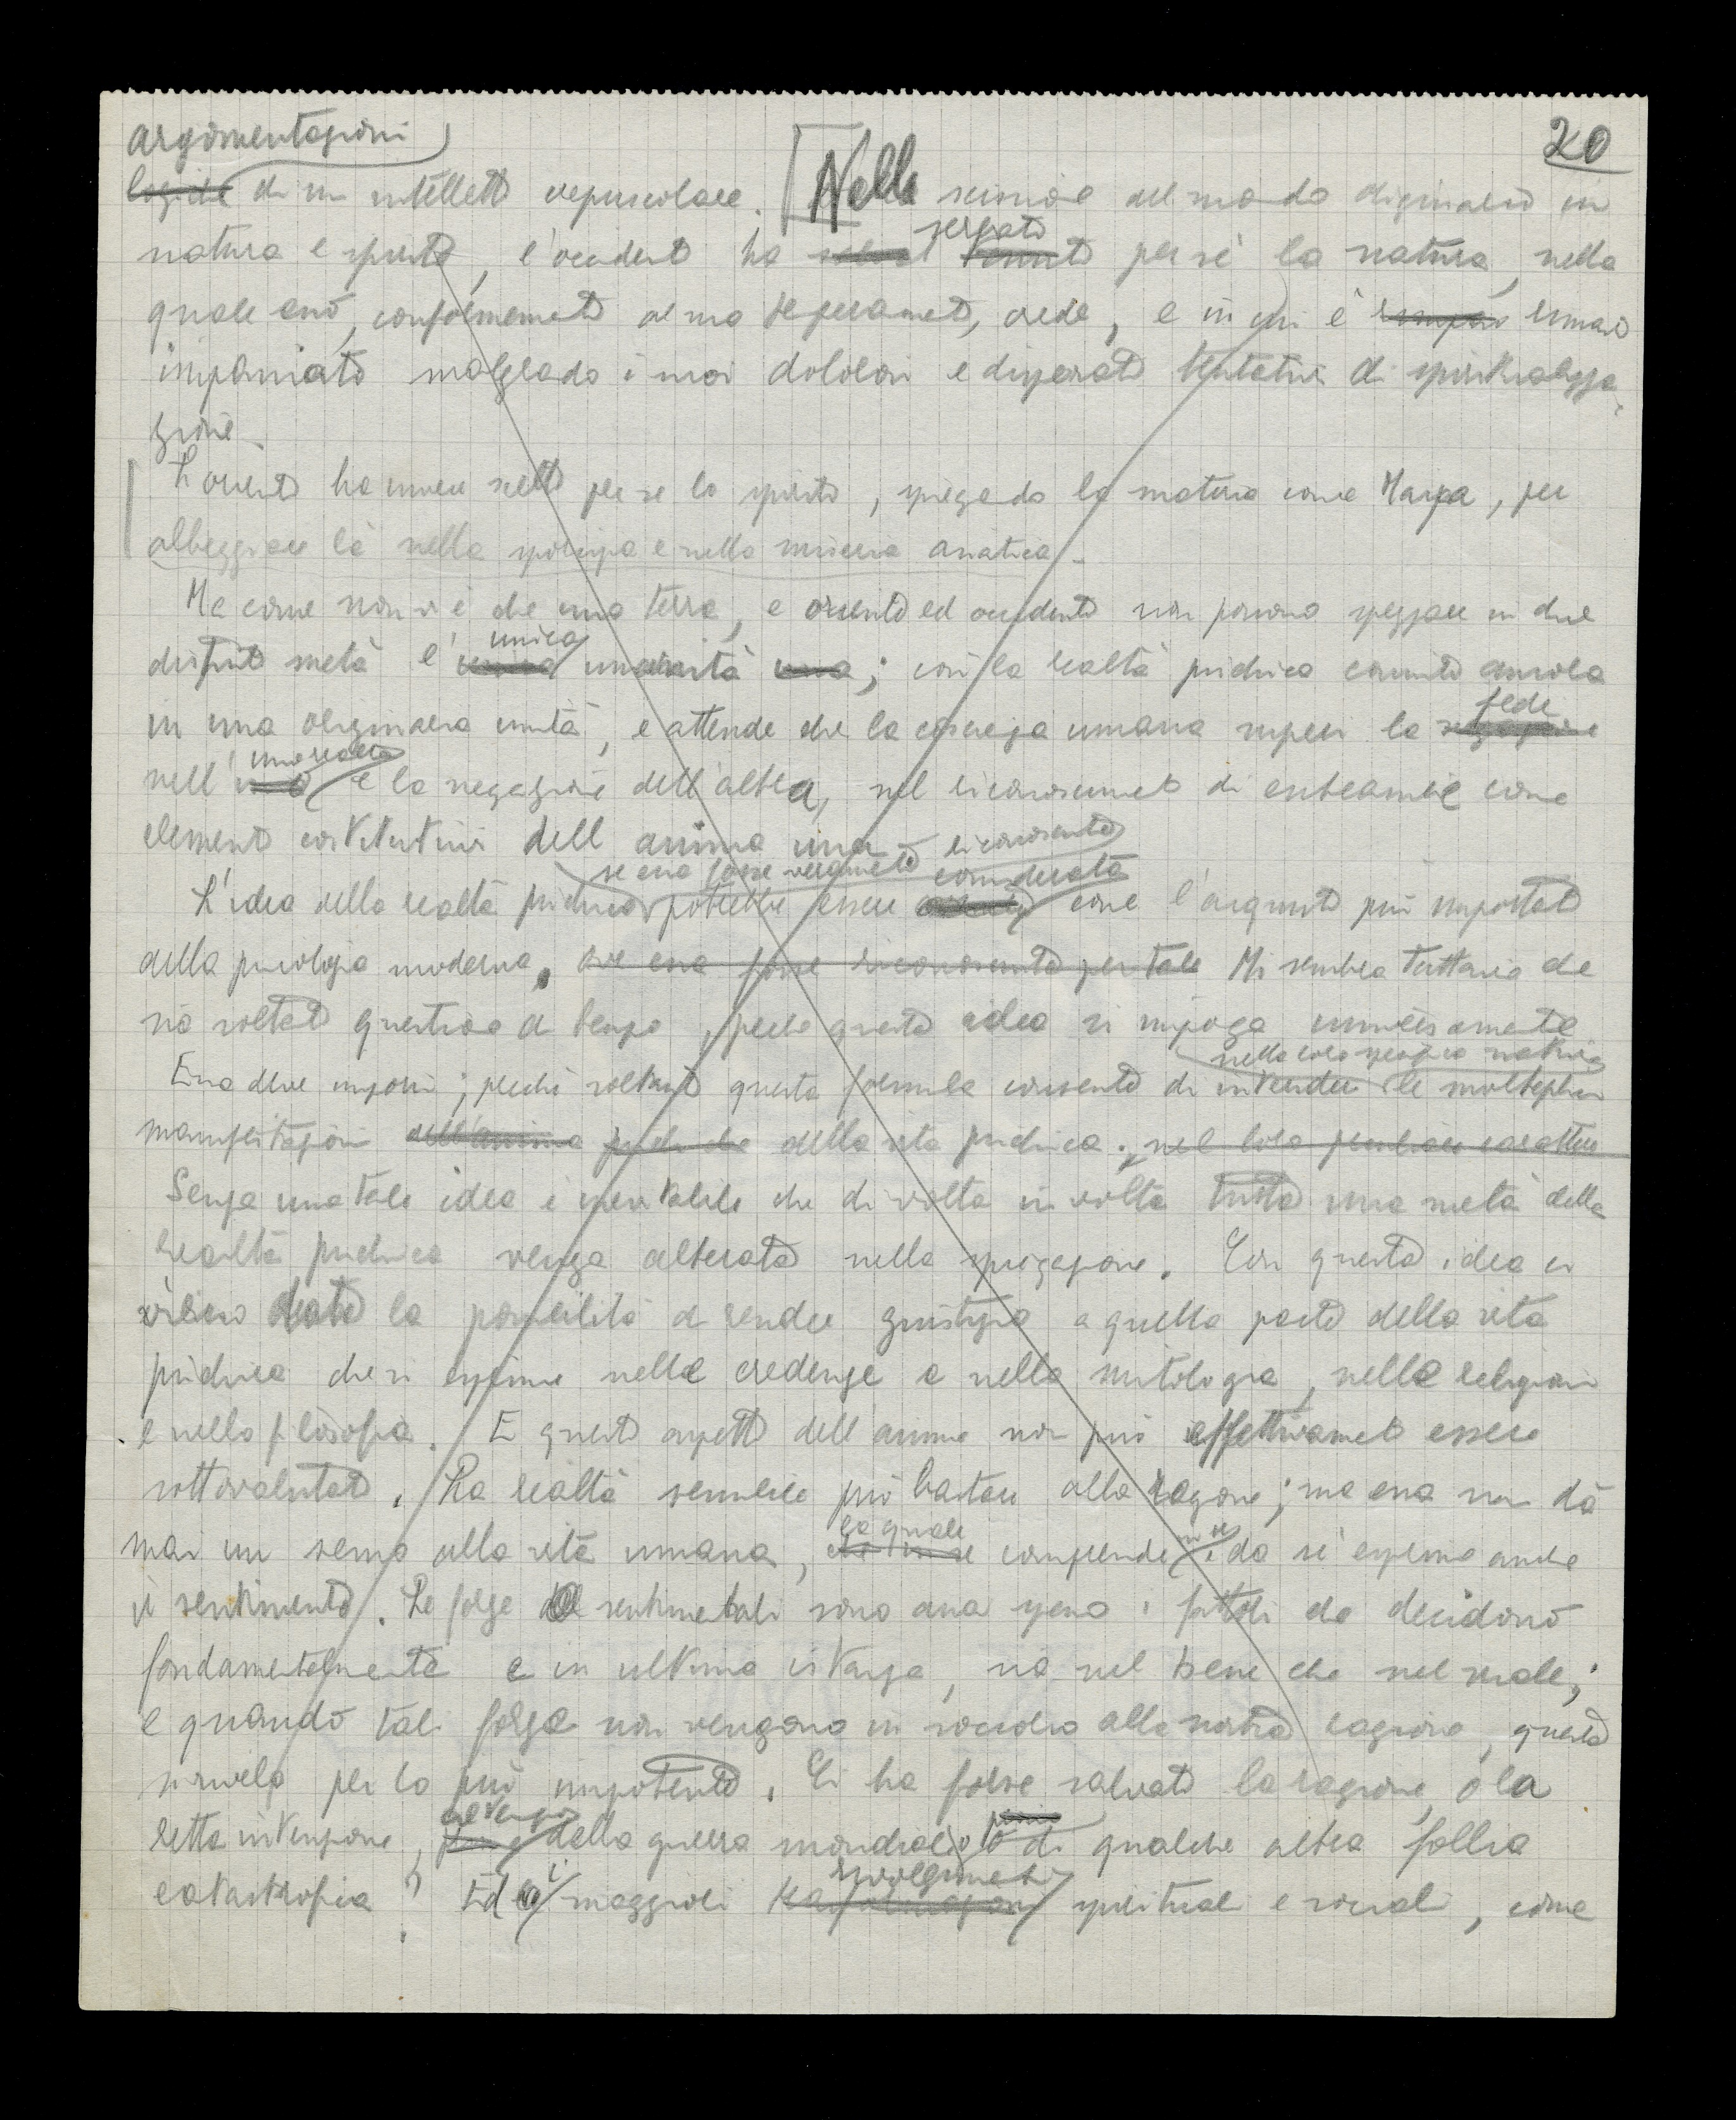 20
argomentazioni
logiche di un intelletto crepuscolare. [Nella scissione del mondo originario in
natura e spirito, l'occidente ha serbato per sè la natura, nella
quale esso, conformemente al suo temperamento, crede, e in cui è rimasto
impaniato malgrado i suoi dolorosi e disperati tentativi di spiritualizza
zione.
L'oriente ha invece scelto per se lo spirito, spiegando la materia come Maya, per
albeggiare là nella sporcizia e nella miseria asiatica.
Ma come non vi è che una terra, e oriente ed occidente non possono spezzare in due
distinte metà l'unica umanità una; così la realtà psichica consiste ancora
in una originaria unità, e attende che la coscienza umana superi la fede
nell'una realtà e la negazione dell'altra, nel riconoscimento di entrambe come
elementi costitutivi dell'anima una
riconosciuta
se essa fosse veramente considerata
L'idea della realtà psichica potrebbe essere come l'acquisto più importante
della psicologia moderna, ove essa fosse riconosciuta per tale Mi sembra tuttavia che
sia soltanto questione di tempo, perchè questa idea si imponga universalmente
nella loro specifica natura
Essa deve imporsi; perchè soltanto questa formula consente di intendere le molteplici
manifestazioni dell'anima psichica della vita psichica. nel loro peculiare carattere
Senza una tale idea è inevitabile che di volta in volta tutta una metà della
realtà psichica venga alterata nella spiegazione. Con questa idea ci
viene data la possibilità di rendere giustizia a quella parte della vita
psichica che si esprime nelle credenze e nella mitologia, nelle religioni
e nella filosofia. E questo aspetto dell'anima non può effettivamente essere
sottovalutato. La realtà sensibile può bastare alla ragione; ma essa non dà
mai un senso alla vita umana, la quale comprende in se e da sè esprime anche
il sentimento. Le forze sentimentali sono assai spesso i fattori che decidono
fondamentalmente e in ultima istanza, sia nel bene che nel male;
e quando tali forze non vengono in soccorso alla nostra ragione, questa
si rivela per lo più impotente. Ci ha forse salvato la ragione, o la
retta intenzione, della guerra mondiale, o di qualche altra follia
catastrofica? Ed i maggiori rivolgimenti spirituali e sociali, come